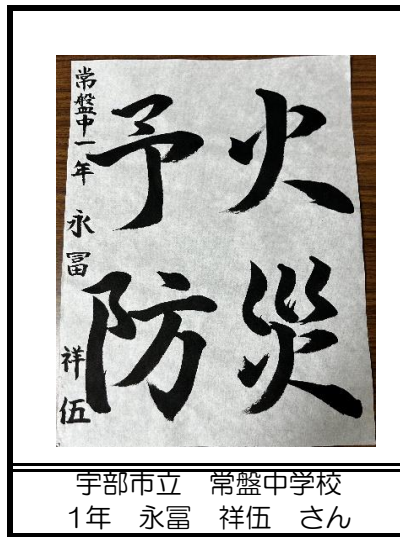 火災
予防
常盤中一年 永冨 祥伍
宇部市立 常盤中学校
1年 永冨 祥伍 さん